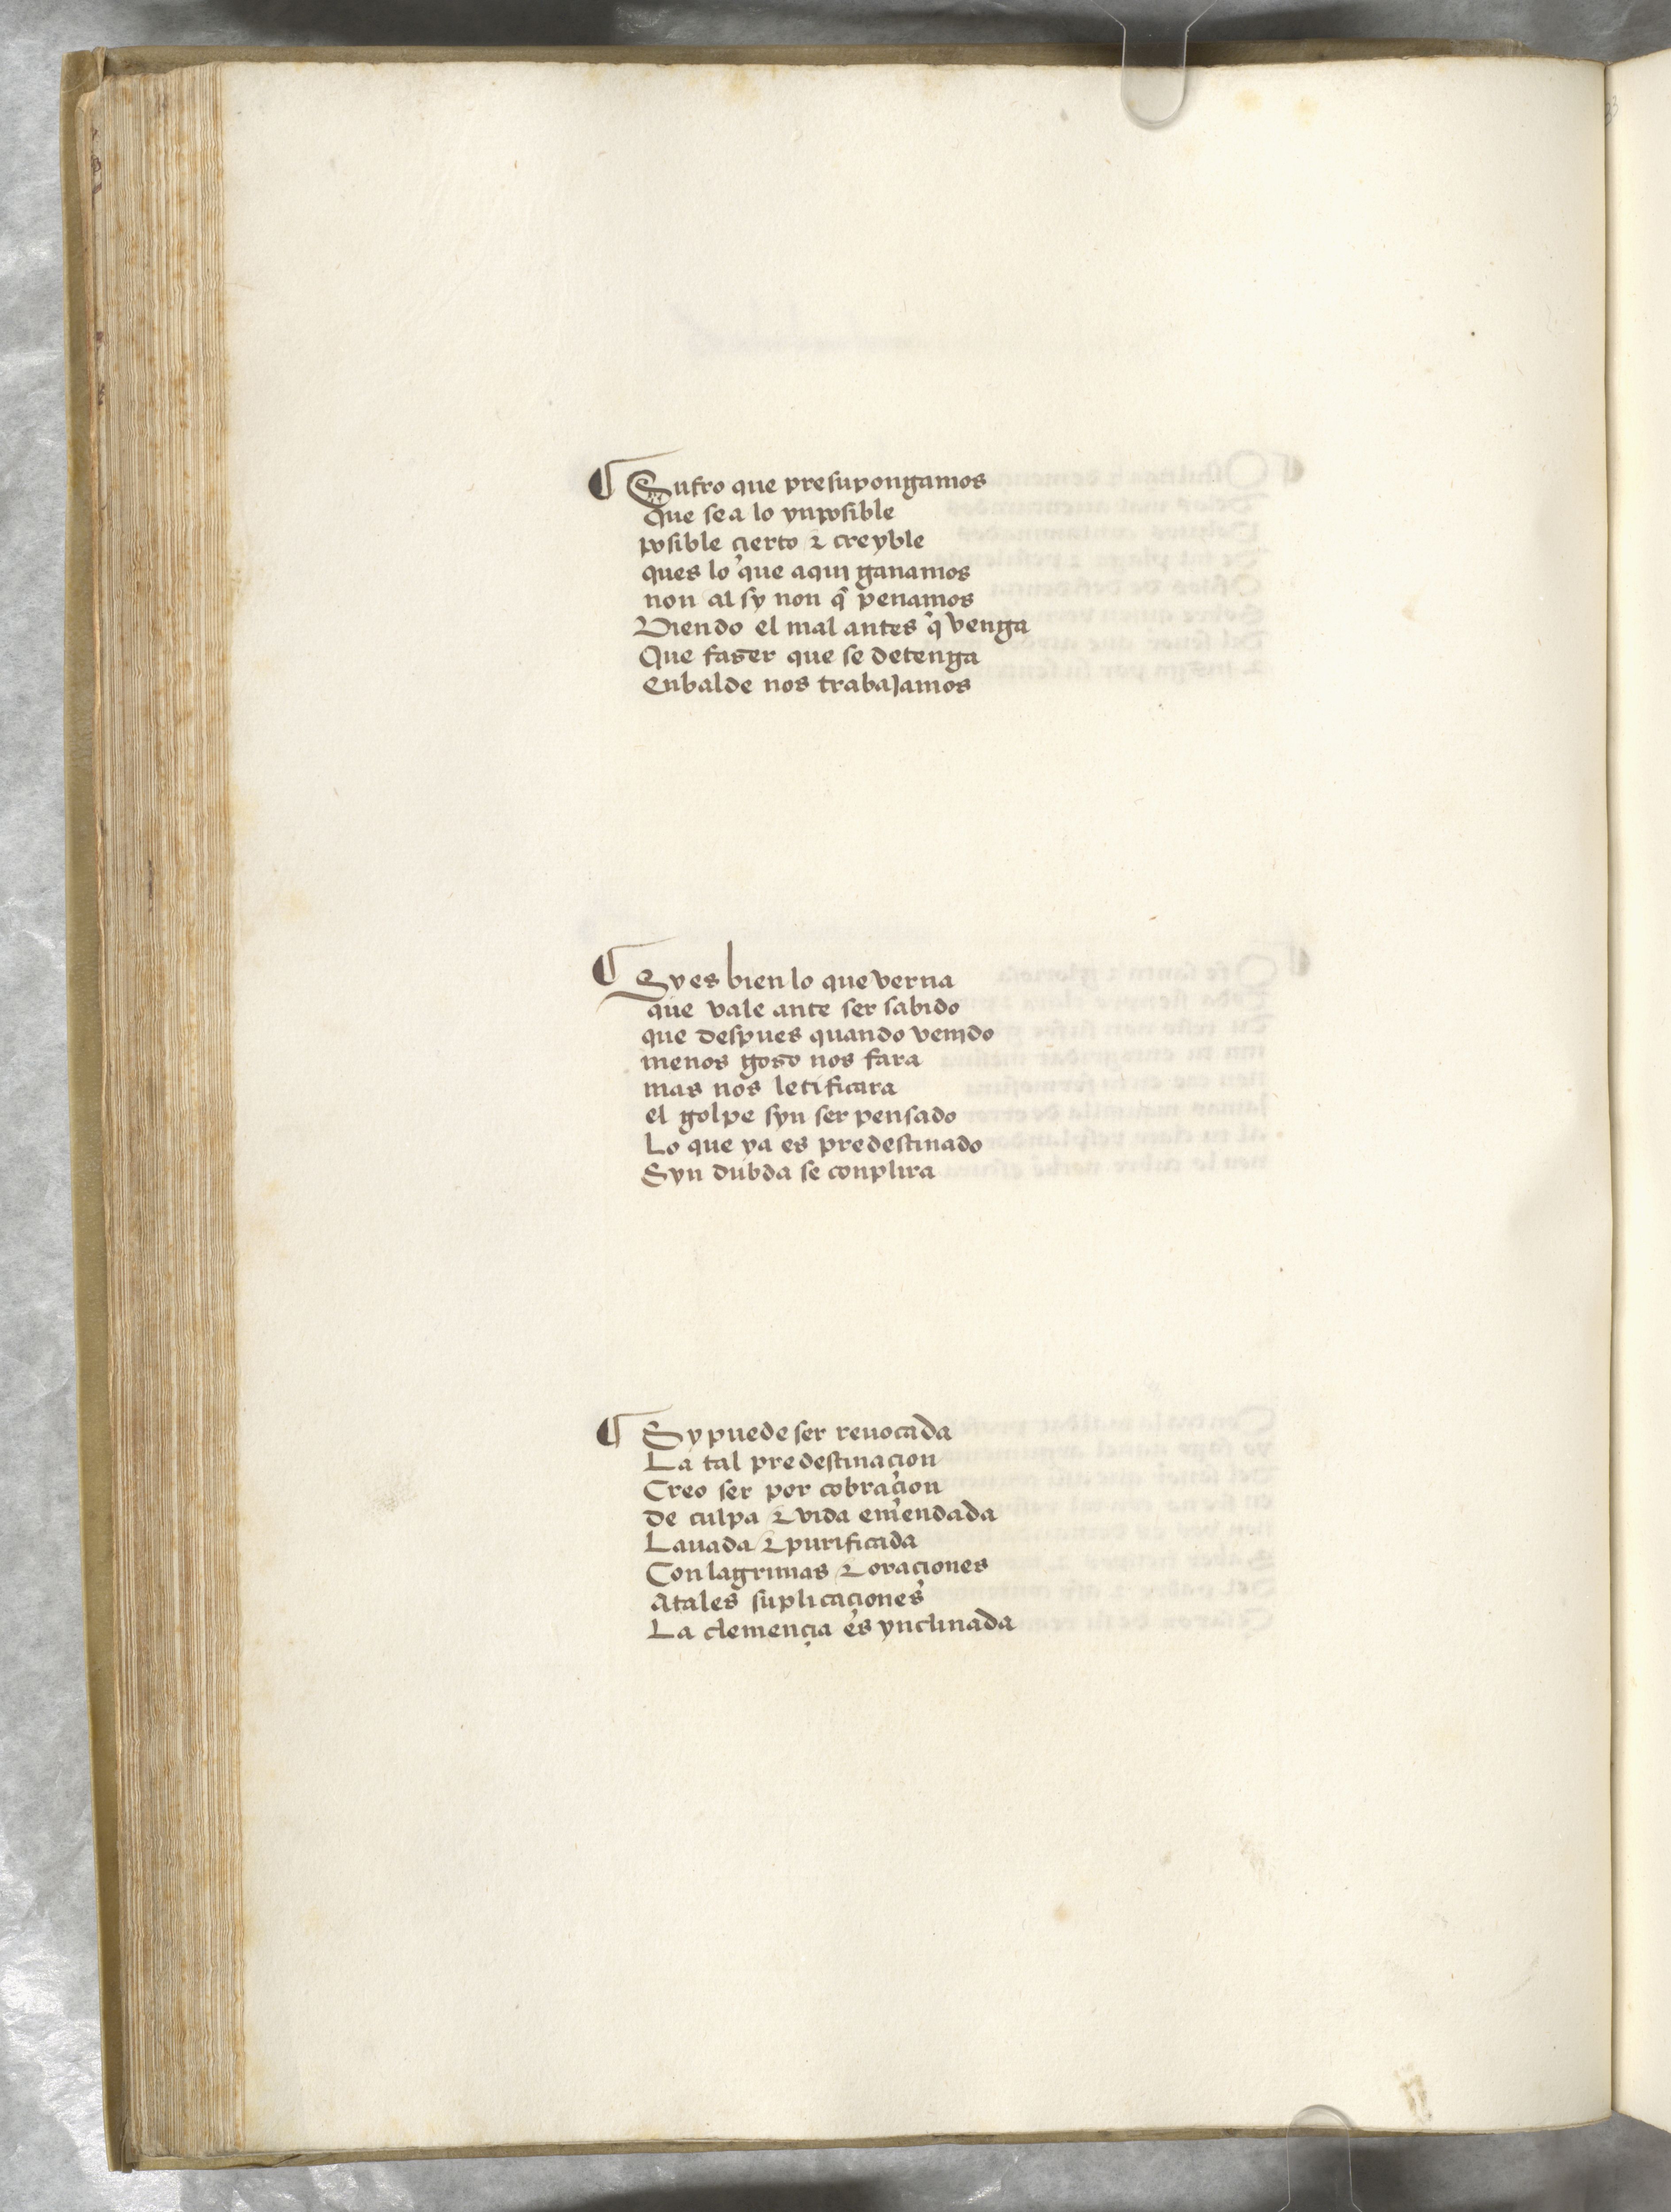 ¶ Sufro que presupongamos
Que sea lo ynposible
posible cierto ⁊ creyble
ques lo que aqui ganamos
non al sy non q̃ penamos
Viendo el mal antes q̃ venga
Que faser que se detenga
enbalde nos trabajamos
¶ Sy es bien lo que verna
que vale ante ser sabido
que despues quando venido
menos goso nos fara
mas nos letificara
el golpe syn ser pensado
Lo que ya es predestinado
Syn dubda se conplira
¶ Sy puede ser reuocada
La tal predestinacion
Creo ser por cobracion
de culpa ⁊ vida emendada
Lauada ⁊ purificada
Con lagrimas ⁊ oraciones
A tales suplicaciones
La clemençia es ynclinada